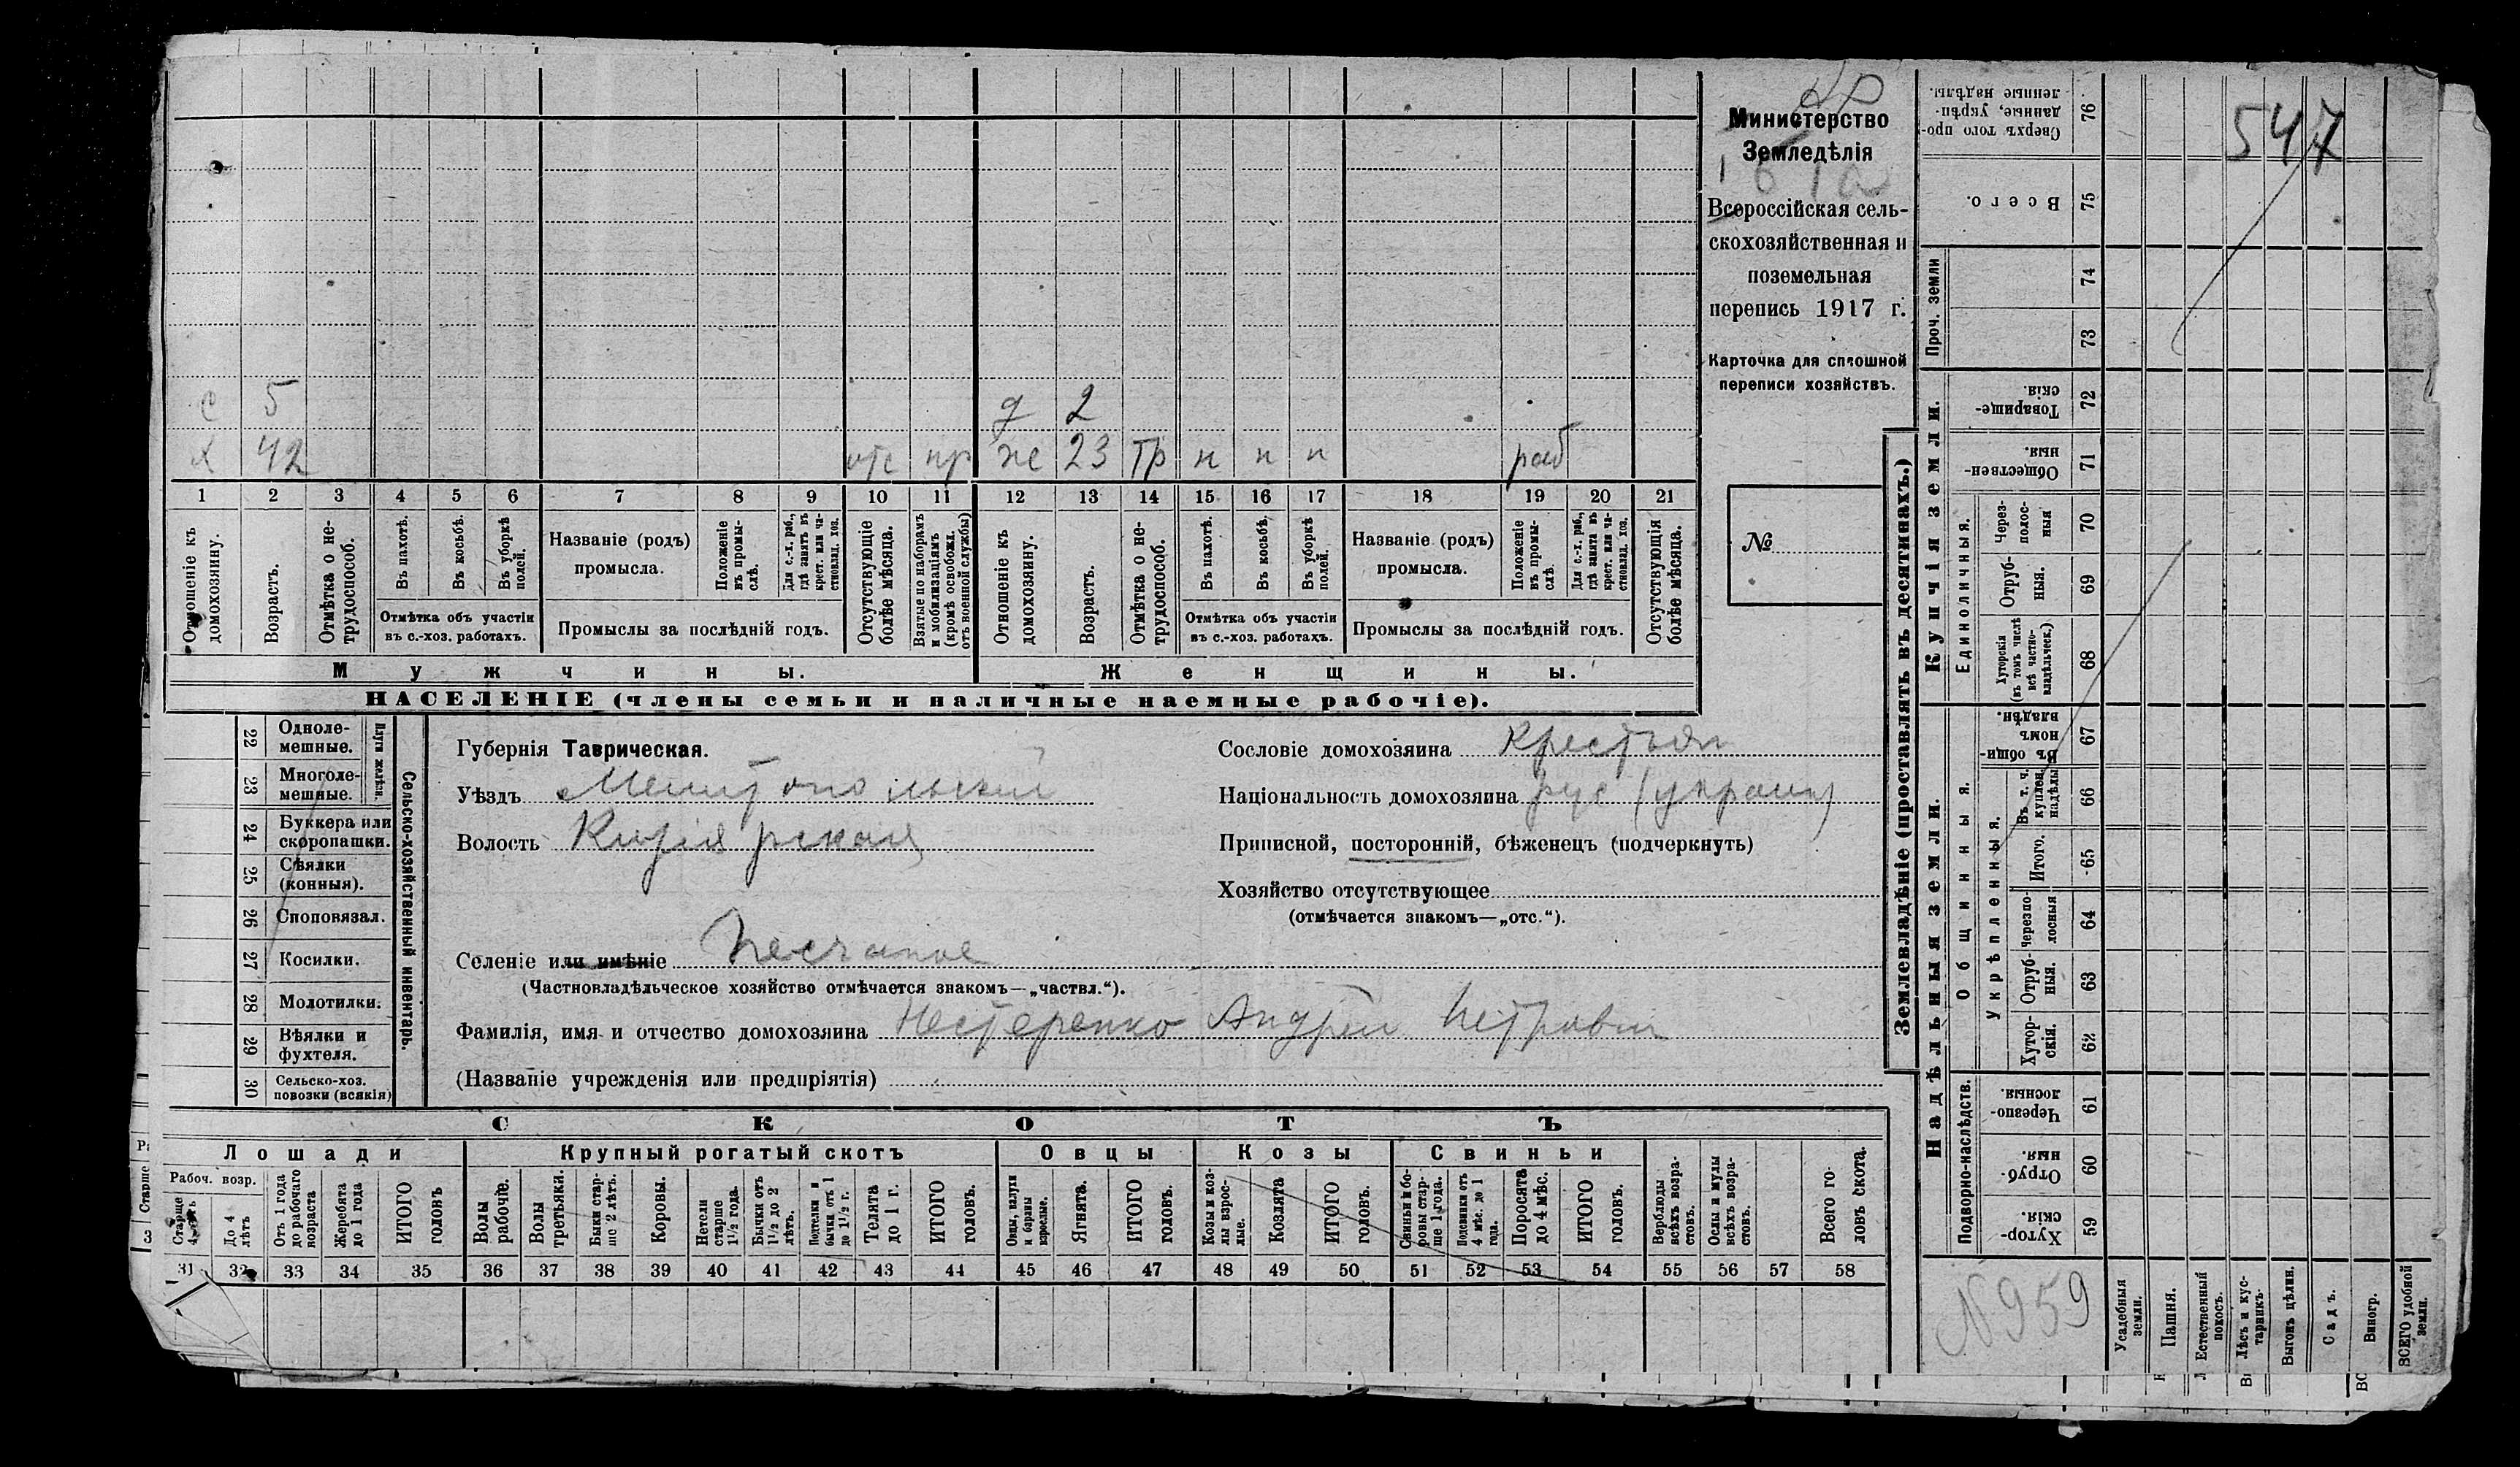 Министерство
Земледѣлія
Всероссійская сель-
скохозяйственная и
поземельная
перепись 1917 г.
Карточка для сплошной
переписи хозяйствъ.
№
547
с 5 д 2
х 42 отс пр же 23 тр н п п раб
1 2 3 4 5 6 7 8 9 10 11 12 13 14 15 16 17 18 19 20 21
Отношеніе къ домохозяину.
Возрастъ.
Отмѣтка о не-трудоспособ.
Въ пахотѣ.
Въ косьбѣ.
Въ уборкѣ полей.
Отмѣтка объ участіи
въ с.-хоз. работахъ.
Названіе (родъ)
промысла.
Положеніе въ промы-слѣ.
Для с.-х. раб., гдѣ занятъ въ крест. или ча-стновлад. хоз.
Промыслы за послѣдній годъ.
Отсутствующіе болѣе мѣсяца.
Взятые по наборамъ и мобилизаціямъ (кромѣ освобожд. отъ военной службы)
Отношеніе къ домохозяину.
Возрастъ.
Отмѣтка о не-трудоспособ.
Въ пахотѣ.
Въ косьбѣ.
Въ уборкѣ полей.
Отмѣтка объ участіи
въ с.-хоз. работахъ.
Названіе (родъ)
промысла.
Положеніе въ промы-слѣ.
Для с.-х. раб., гдѣ занята въ крест. или ча-стновлад. хоз.
Промыслы за послѣдній годъ.
Отсутствующія болѣе мѣсяца.
Мужчины. Женщины.
НАСЕЛЕНІЕ (члены семьи и наличные наемные рабочіе).
Сельско-хозяйственный инвентарь.
Плуги желѣзн.
22 Одноле-мешные.
23 Многоле-мешные.
24 Буккера или скоропашки.
25 Сѣялки (конныя).
26 Сноповязал.
27 Косилки.
28 Молотилки.
29 Вѣялки и фухтеля.
30 Сельско-хоз. повозки (всякія)
Губернія Таврическая.
Уѣздъ Мелитопольский
Волость
Селеніе или имѣніе Песчаное
(Частновладѣльческое хозяйство отмѣчается знакомъ—„частвл.“).
Фамилія, имя и отчество домохозяина Нестеренко Андрей Петрович
(Названіе учрежденія или предпріятія)
Сословіе домохозяина крестьян
Національность домохозяина рус (украин)
Приписной, посторонній, бѣженецъ (подчеркнуть)
Хозяйство отсутствующее
(отмѣчается знакомъ—„отс.“).
СКОТЪ
Лошади Крупный рогатый скотъ Овцы Козы Свиньи
Рабоч. возр.
Старше 4 лѣтъ
До 4 лѣтъ
Отъ 1 года до рабочаго возраста
Жеребята до 1 года
ИТОГО головъ
Волы рабочіе.
Волы третьяки.
Быки стар-ше 2 лѣтъ.
Коровы.
Нетели старше 1½ года.
Бычки отъ 1½ до 2 лѣтъ.
Подтелки и бычки отъ 1 до 1½ г.
Телята до 1 г.
ИТОГО головъ.
Овцы, валухи и бараны взрослые.
Ягнята.
ИТОГО головъ.
Козы и коз-лы взрос-лые.
Козлята
ИТОГО головъ.
Свиньи и бо-ровы стар-ше 1 года.
Подсвинки отъ 4 мѣс. до 1 года.
Поросята до 4 мѣс.
ИТОГО головъ.
Верблюды всѣхъ возра-стовъ.
Ослы и мулы всѣхъ возра-стовъ.
Всего го-ловъ скота.
31 32 33 34 35 36 37 38 39 40 41 42 43 44 45 46 47 48 49 50 51 52 53 54 55 56 57 58
Землевладѣніе (проставлять въ десятинахъ.)
Сверхъ того про-данные, укрѣп-ленные надѣлы. 76
Всего. 75
Проч. земли 74
73
Купчія земли.
Товарище-скія. 72
Обществен-ныя. 71
Единоличныя.
Через-полос-ныя 70
Отруб-ныя. 69
Хуторскія (въ томъ числѣ всѣ частно-владѣльческ.) 68
Надѣльныя земли.
Общинныя.
Въ общин-номъ владѣн. 67
Укрѣпленныя.
Въ т. ч. куплен. надѣлы 66
Итого. 65
Черезпо-лосныя 64
Отруб-ныя. 63
Хутор-скія. 62
Подворно-наслѣдств.
Черезпо-лосныя 61
Отруб-ныя. 60
Хутор-скія. 59
N 959
Усадебныя земли.
Пашня.
Естественный покосъ.
Лѣсъ и кус-тарникъ.
Выгонъ цѣлин.
Садъ.
Виногр.
ВСЕГО удобной земли.